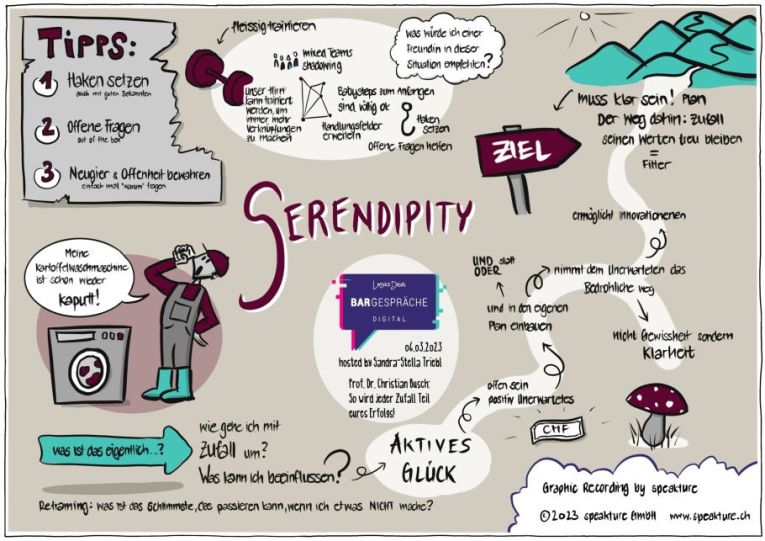 TIPPS:
1 Haken setzen
auch mit guten Bekannten
2 Offene Fragen
out of the box
3 Neugier & Offenheit bewahren
einfach mal "warum" fragen
Fleissig trainieren
mixed Teams
shadowing
unser Hirn
kann trainiert
werden, um
immer mehr
Verknüpfungen
zu machen
Babysteps zum Anfangen
sind völlig ok
Handlungsfelder
erweitern
Haken
setzen
Offene Fragen helfen
was würde ich einer
Freundin in dieser
Situation empfehlen?
ZIEL
Muss klar sein! Plan
Der Weg dahin: Zufall
seinen Werten treu bleiben
=
Filter
SERENDIPITY
Meine
Kartoffelwaschmaschine
ist schon wieder
kaputt!
BARGESPRÄCHE
DIGITAL
06.03.2023
hosted by Sandra-Stella Triebl
Prof. Dr. Christian Busch:
So wird jeder Zufall Teil
eures Erfolgs!
ermöglicht Innovationenen
UND statt
ODER
nimmt dem Unerwarteten das
Bedrohliche weg
und in den eigenen
Plan einbauen
nicht Gewissheit sondern
Klarheit
offen sein
positiv Unerwartetes
CHF
AKTIVES
GLÜCK
was ist das eigentlich...?
wie gehe ich mit
Zufall um?
Was kann ich beeinflussen?
Reframing: was ist das Schlimmste, das passieren kann, wenn ich etwas NICHT mache?
Graphic Recording by speakture
©2023 speakture GmbH www.speakture.ch